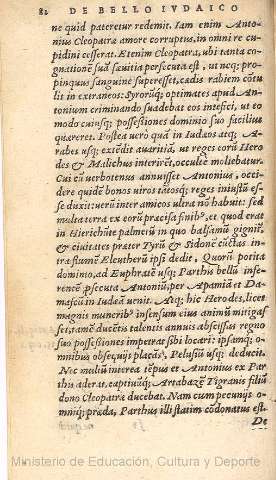 82 DE BELLO IVDAICO
ne quid pateretur redemit. Iam enim Anto-
nius Cleopatræ amore corruptus, in omni re cu-
pidini cesserat. Etenim Cleopatra, ubi tanta co-
gnatione sua sæuitia persecuta est, ut neq; pro-
pinquus sanguine superesset, eadē rabiem cōtu
lit in extraneos: Syrorūq; optimates apud An-
tonium criminando suadebat eos īterfici, ut eo
modo cuiusq; possessiones dominio suo facilius
quæreret. Postea uerò quā in Iudæos atq; A-
rabes usq; extēdit auaritiā, ut reges eorū Hero
des & Malichus interirēt, occultè moliebatur.
Cui cū uerbotenus annuisset Antonius, occi-
dere quidē bonos uiros tātosq; reges iniustū es-
se duxit: uerū inter amicos ultra nō habuit: sed
multa terra ex eorū præcisa finib⁹, et quod erat
in Hierichūte palmeiū in quo balsamū gignit̄,
& ciuitates præter Tyrū & Sidonē cūctas in-
tra flumē Eleutherū ipsi dedit. Quorū potita
dominio, ad Euphratē usq; Parthis bellū infe-
rencē p̄secuta Antoniū, per Apamiā et Da-
mascū in Iudeā uenit. Atq; hic Herodes, licet
magnis munerib⁹ infensum eius animū mitigas
set, tamē ducētis talentis annuis abscissas regno
suo possessiones impetrat sibi locari: ipsamq; o-
mnibus obsequijs placās, Pelusiū usq; deducit.
Nec multū interea tēpus et Antonius ex Par
this aderat, captiuūq; Artabazē Tigranis filiū
dono Cleopatræ ducebat. Nam cum pecunijs o-
mniq; præda, Parthus illi statim cōdonatus est.
De
Ministerio de Educación, Cultura y Deporte